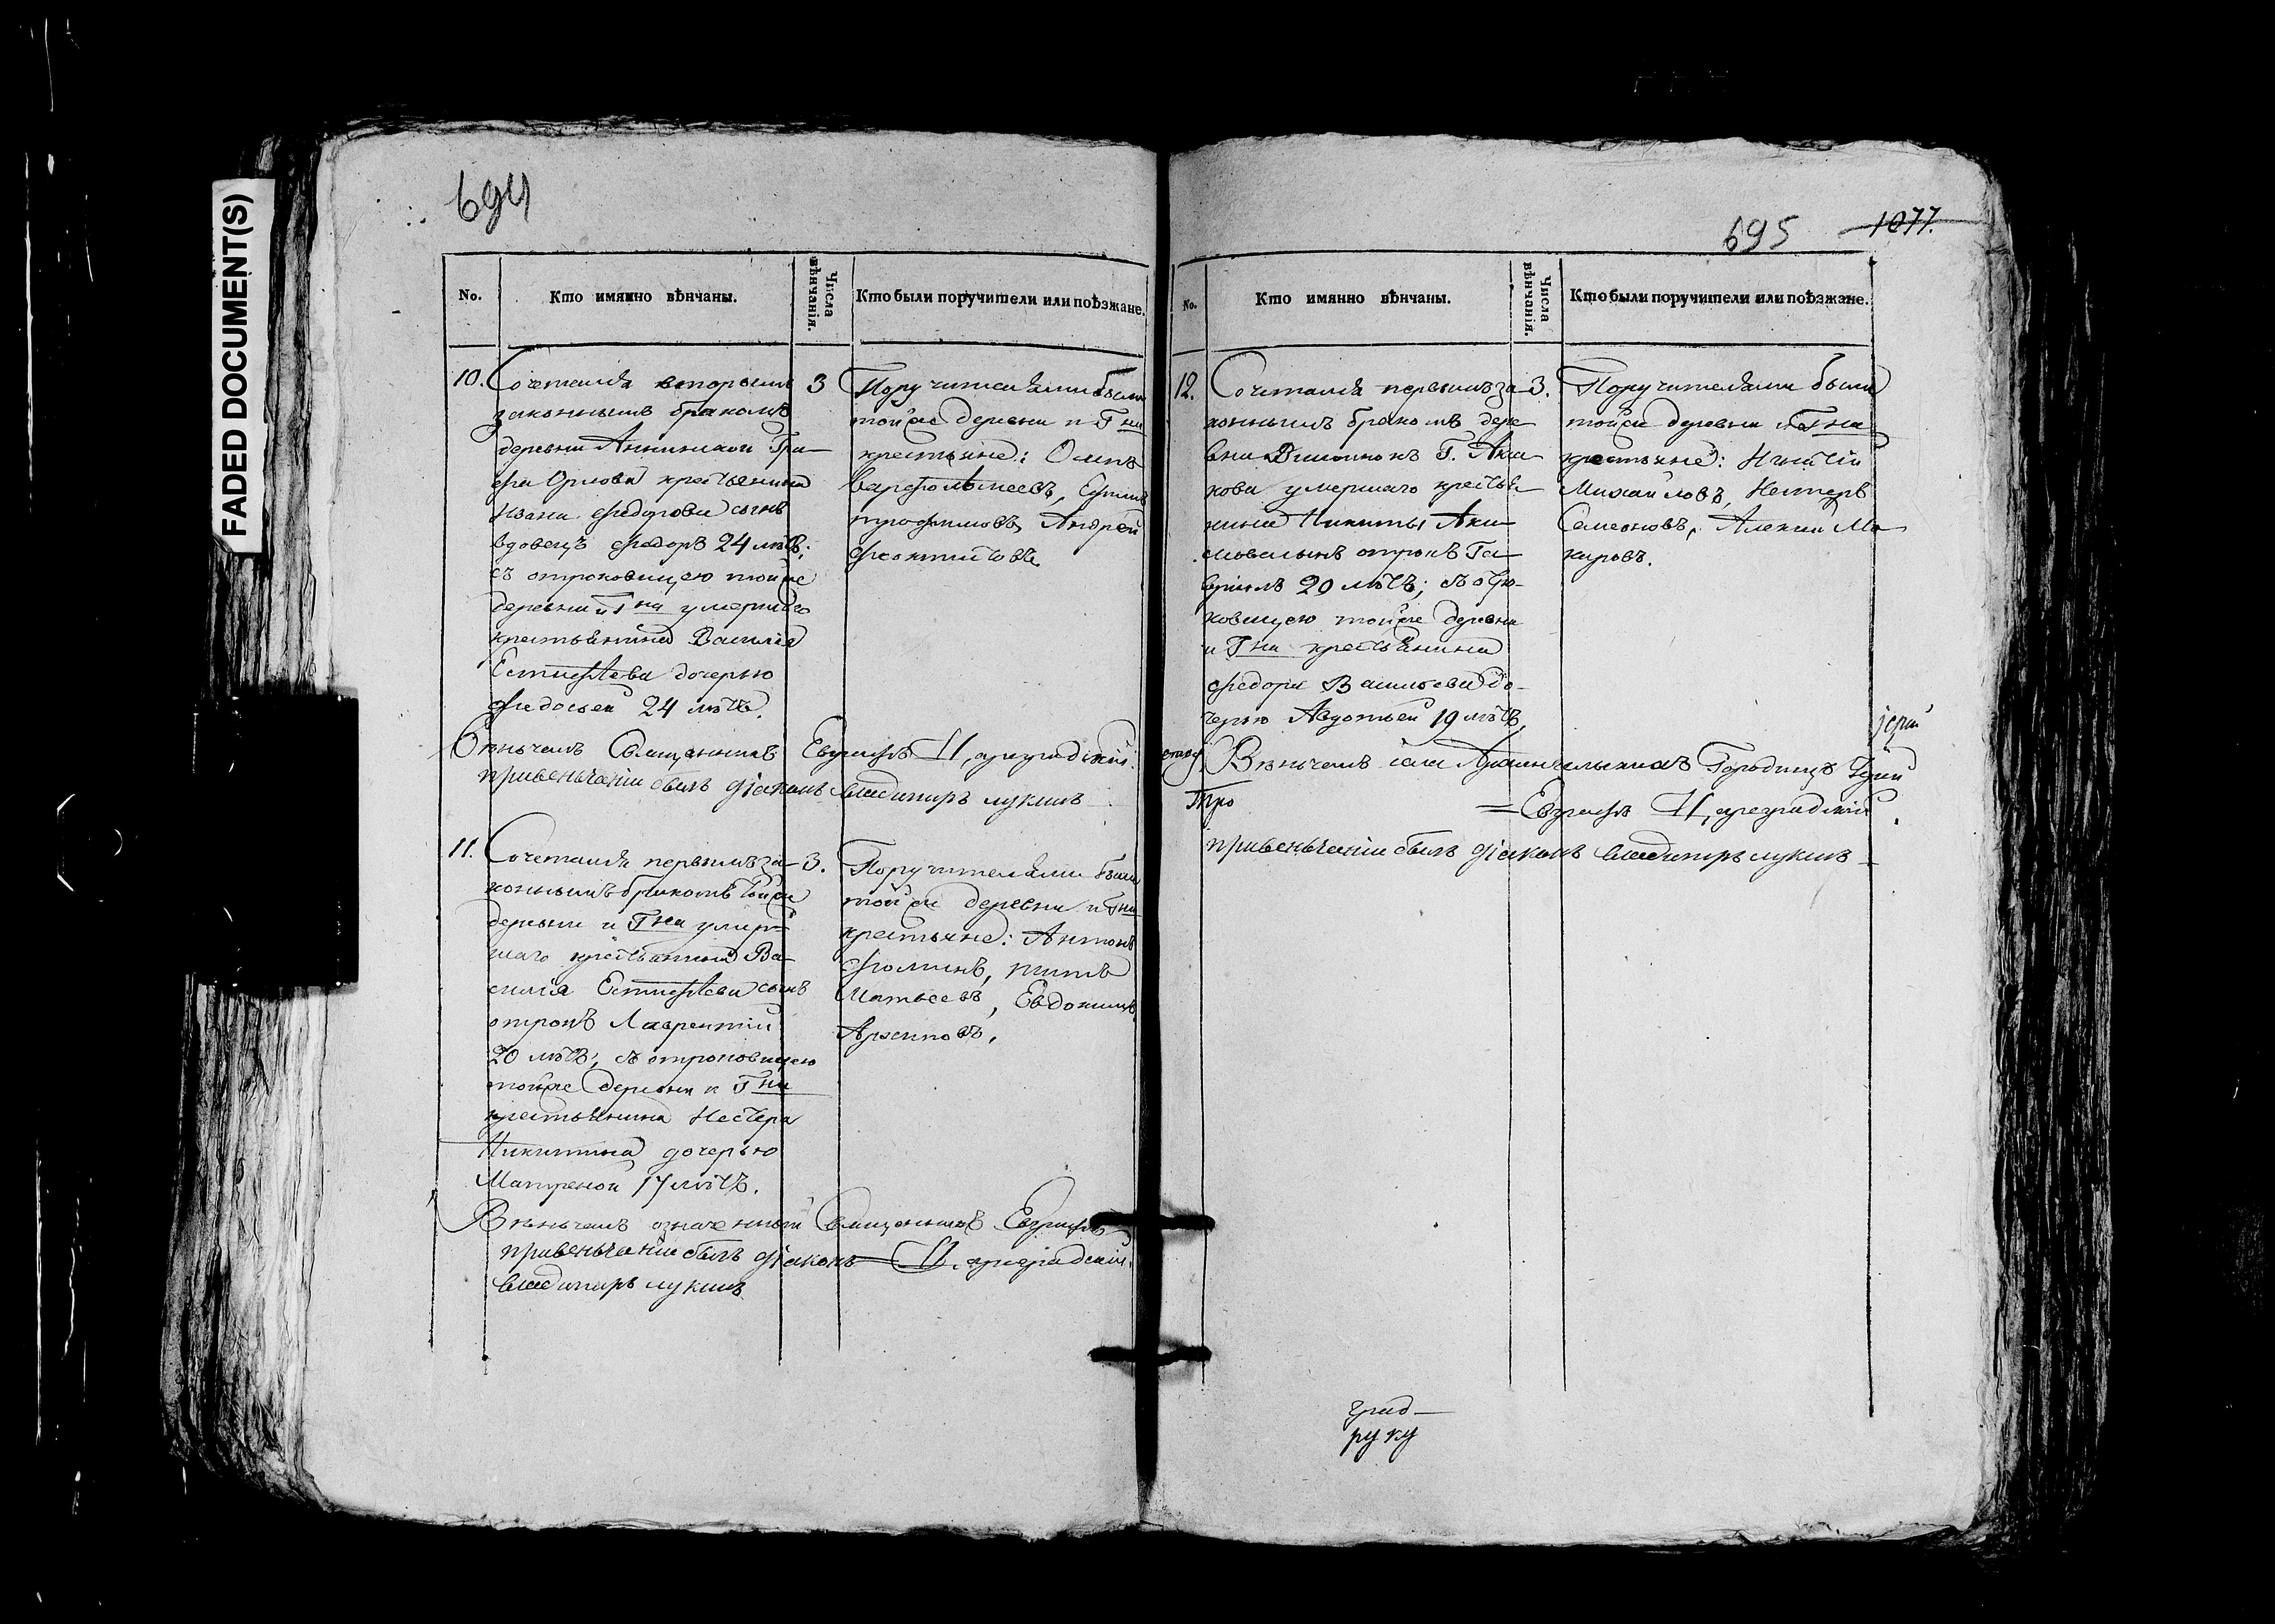 FADED DOCUMENT(S)
694
No.
Кто имянно вѣнчаны.
Числа вѣнчанія.
Кто были поручители или поѣзжане.
10. Сочетался вторымъ
законнымъ бракомъ
деревни Аннинской Гра-
фа Орлова крестьянина
Ивана Федорова сынъ
вдовецъ Федоръ 24 лѣтъ;
съ отроковицею тойже
деревни и Гна умершаго
крестьянина Василія
Естифѣева дочерью
Федосьей 24 лѣтъ.
3
Поручителями были
тойже деревни и Гна
крестьяне: Осипъ
Варфоломеевъ, Ефимъ
Трофимовъ, Андрей
Феоктистовъ.
Вѣнчалъ Священникъ Евграфъ Цареградскій.
при венчаніи былъ діаконъ владимиръ лукинъ
11. Сочетался первымъ за-
коннымъ бракомъ тойже
деревни и Гна умер-
шаго крестьянина Ва-
силія Естифѣева сынъ
отрокъ Лаврентій
20 лѣтъ, съ отроковицею
тойже деревни и Гна
крестьянина Нестера
Никитина дочерью
Матреной 17 лѣтъ.
3.
Поручителями были
тойже деревни и Гна
крестьяне: Антонъ
Фоминъ, Титъ
Матвеевъ, Евдокимъ
Архиповъ.
Вѣнчалъ означенный Священникъ Евграфъ
Цареградскій.
при венчаніи былъ діаконъ
владимиръ лукинъ
695
1077.
No.
Кто имянно вѣнчаны.
Числа вѣнчанія.
Кто были поручители или поѣзжане.
12. Сочетался первымъ за-
коннымъ бракомъ дере-
вни Г.
умершаго крестья-
нина Никиты Аки-
мова сынъ отрокъ Га-
вріилъ 20 лѣтъ; съ отро-
ковицею тойже деревни
и Гна крестьянина
Федора Васильева до-
черью Авдотьей 19 лѣтъ.
3.
Поручителями были
тойже деревни и Гна
крестьяне: Игнатій
Михайловъ, Нестеръ
Семеновъ, Алексей Ма
каровъ.
іерей
Вѣнчалъ села Городищъ Іерей
Про
= Евграфъ Цареградскій.
при венчаніи былъ діаконъ владимиръ лукинъ
град-
руку